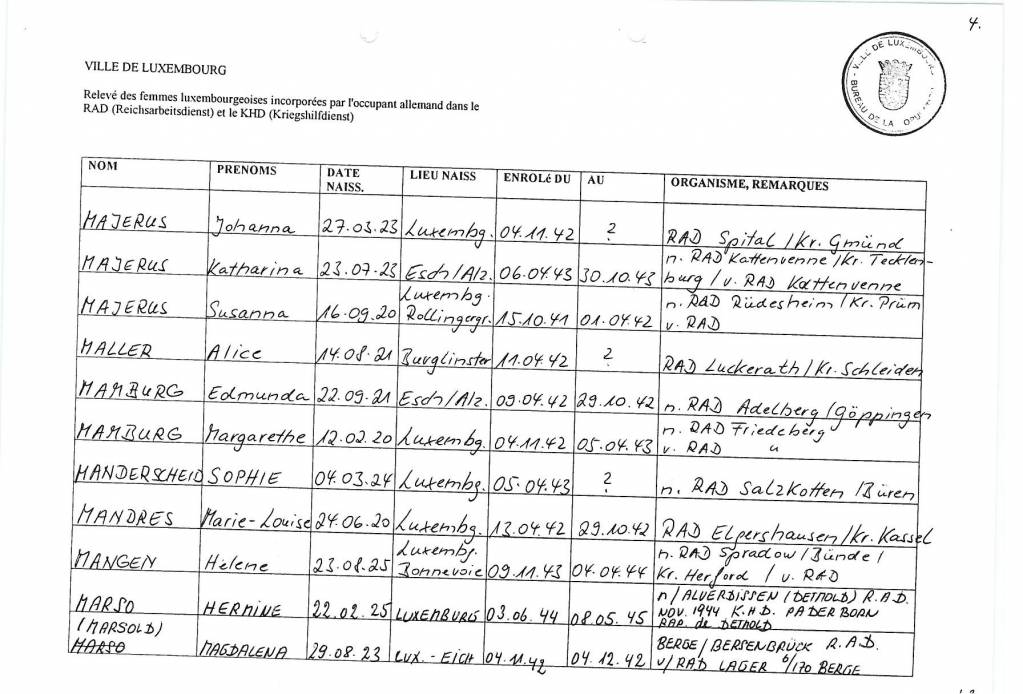 4.
VILLE DE LUXEMBOURG
Relevé des femmes luxembourgeoises incorporées par l'occupant allemand dans le
RAD (Reichsarbeitsdienst) et le KHD (Kriegshilfdienst)
VILLE DE LUXEMBOURG
BUREAU DE LA
NOM PRENOMS DATE NAISS. LIEU NAISS ENROLé DU AU ORGANISME, REMARQUES
MAJERUS Johanna 27.03.23 Luxembg. 04.11.42 ? RAD Spital /Kr. Gmünd
MAJERUS Katharina 23.07.23 Esch/Alz. 06.04.43 30.10.43 n. RAD Kattenvenne /Kr. Tecklen-
burg / v. RAD Kattenvenne
MAJERUS Susanna 16.09.20 Luxembg. Rollingergr. 15.10.41 01.04.42 n. RAD Rüdesheim / Kr. Prüm
v. RAD
MALLER Alice 14.08.21 Burglinster 11.04.42 ? RAD Luckerath / Kr. Schleiden
MAMBURG Edmunda 22.09.21 Esch/Alz. 09.04.42 29.10.42 n. RAD Adelberg /Göppingen
MAMBURG Margarethe 12.02.20 Luxembg. 04.11.42 05.04.43 n. RAD Friedeberg
v. RAD "
MANDERSCHEID SOPHIE 04.03.24 Luxembg. 05.04.43 ? n. RAD Salzkotten /Büren
MANDRES Marie-Louise 24.06.20 Luxembg. 13.04.42 29.10.42 RAD Elpershausen /Kr. Kassel
MANGEN Helene 23.08.25 Luxembg. Bonnevoie 09.11.43 04.04.44 n. RAD Spradow / Bünde /
Kr. Herford / v. RAD
MARSO HERMINE 22.02.25 LUXEMBURG 03.06.44 08.05.45 n/ALVERDISSEN (DETMOLD) R.A.D.
NOV. 1944 K.H.D. PADERBORN
RAD de DETMOLD
(MARSOLD)
MARSO MAGDALENA 29.08.23 LUX.-EICH 04.11.42 04.12.42 BERGE/BERSENBRÜCK R.A.D.
v/RAD LAGER 6/170 BERGE